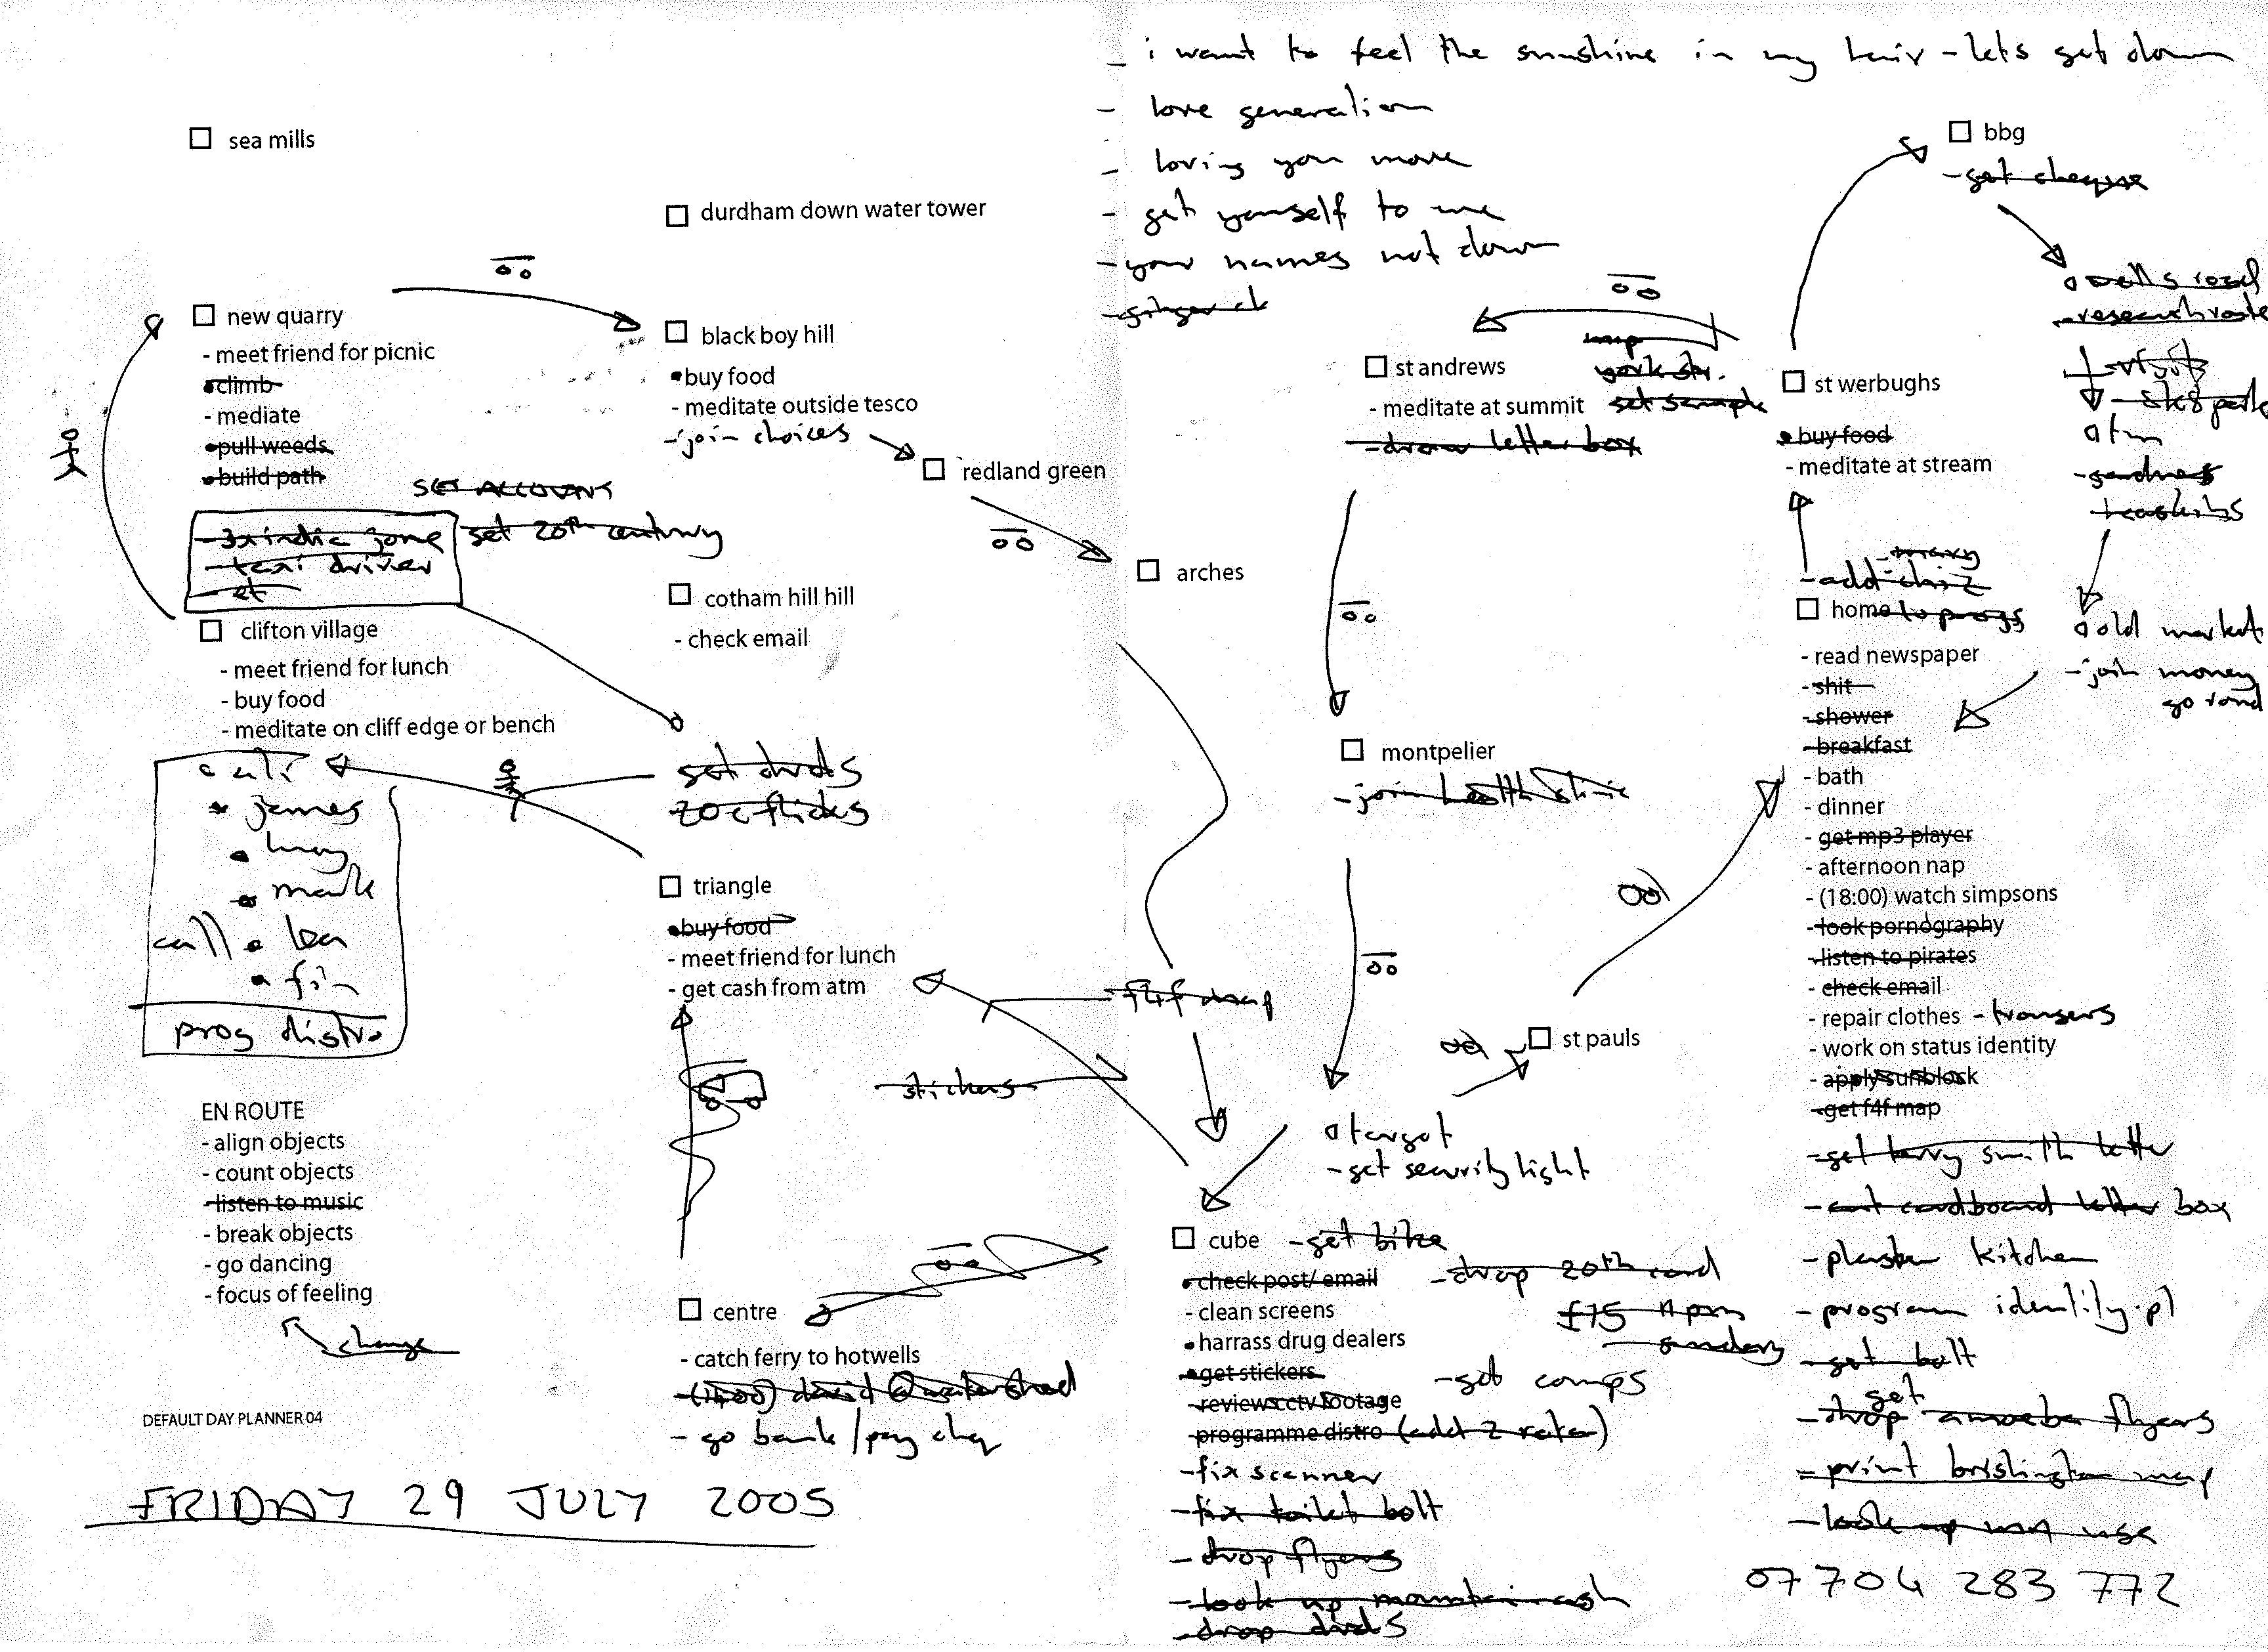 - i want to feel the sunshine in my hair - lets get down
- love generation
- loving you more
- get yourself to me
- your names not down
sea mills
durdham down water tower
bbg
- get cheque
wells road
- research route
- visit
- sk8 park
atm
old market
- join money
go round
new quarry
- meet friend for picnic
- climb
- mediate
- pull weeds
- build path
SET ACCOUNT
get 20th century
- taxi driver
- et
black boy hill
- buy food
- meditate outside tesco
- join choices
redland green
arches
st andrews
- meditate at summit
- draw letter box
map
york str.
get sample
st werbughs
- buy food
- meditate at stream
clifton village
- meet friend for lunch
- buy food
- meditate on cliff edge or bench
ali
james
mark
call
fin
prog distro
cotham hill hill
- check email
get dvds
20c flicks
triangle
- buy food
- meet friend for lunch
- get cash from atm
stickers
f4f map
montpelier
- join health clinic
st pauls
target
- get security light
home to progs
- read newspaper
- shit
- shower
- breakfast
- bath
- dinner
- get mp3 player
- afternoon nap
- (18:00) watch simpsons
- look pornography
- listen to pirates
- check email
- repair clothes - trousers
- work on status identity
- apply sunblock
- get f4f map
- get terry smith letter
- cut cardboard letter box
- plaster kitchen
- program identity.pl
- get bolt
get
- drop amoeba flyers
- print brislington map
- look up
07704 283 772
EN ROUTE
- align objects
- count objects
- listen to music
- break objects
- go dancing
- focus of feeling
change
centre
- catch ferry to hotwells
- (1400) david @ watershed
- go bank/pay chq
cube - get bike
- check post/ email
- drop 20th card
- clean screens
£15
- harrass drug dealers
- sunday
- get stickers
- get comps
- review cctv footage
- programme distro (add 2 rota)
- fix scanner
- fix toilet bolt
- drop flyers
- look up mountain ash
- drop dvds
DEFAULT DAY PLANNER 04
FRIDAY 29 JULY 2005